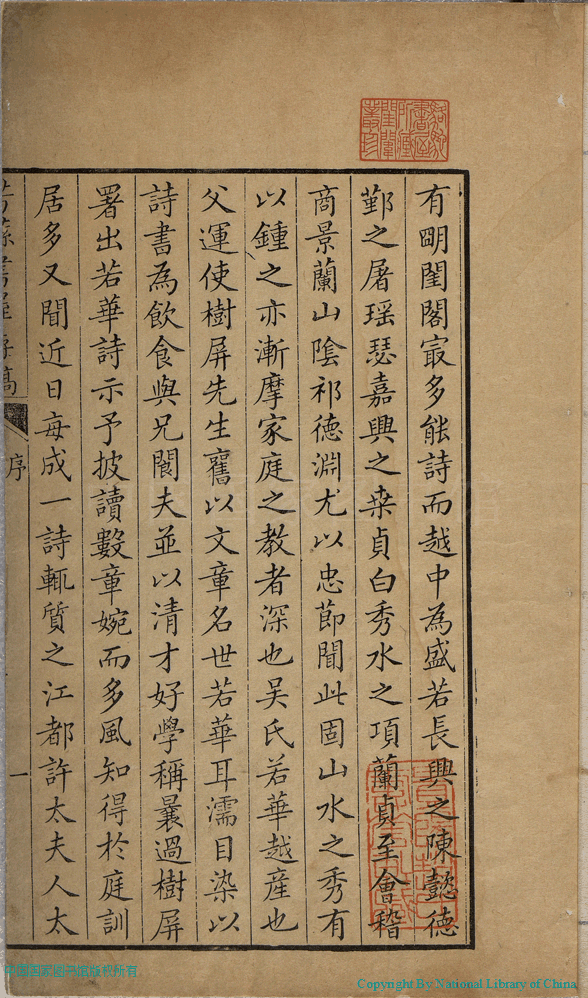 有明閨閣㝡多能詩而越中為盛若長興之陳懿德
鄞之屠瑶瑟嘉興之桒貞白秀水之項蘭貞至會稽
商景蘭山陰祁德淵尤以忠節聞此固山水之秀有
以鍾之亦漸摩家庭之教者深也吴氏若華越產也
父運使樹屏先生舊以文章名世若華耳濡目染以
詩書為飲食與兄閬夫並以清才好學稱曩過樹屏
署出若華詩示予披讀數章婉而多風知得於庭訓
居多又聞近日每成一詩輒質之江都許太夫人太
序
一
中国国家图书馆版权所有
Copyright By National Library of China